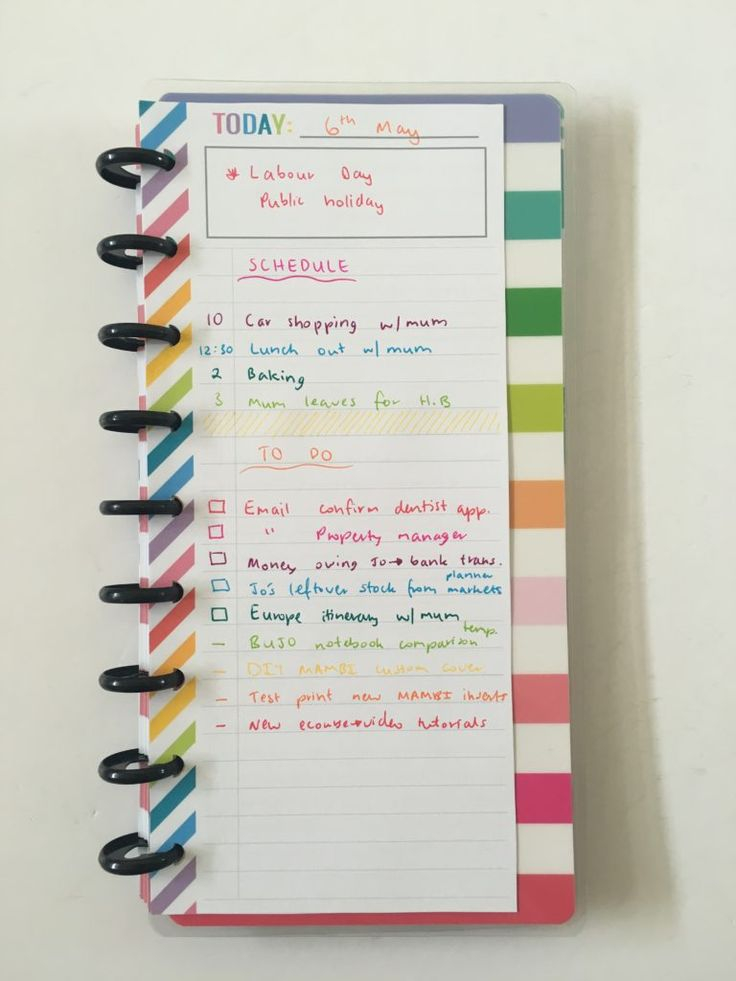 TODAY: 6th May
* Labour Day
Public holiday
SCHEDULE
10 Car shopping w/mum
12:30 Lunch out w/mum
2 Baking
3 Mum leaves for H.B
TO DO
Email confirm dentist app.
" Property manager
Money owing Jo → bank trans.
planner
Jo's leftover stock from markets
Europe itinerary w/mum
temp.
– BUJO notebook comparison
– DIY MAMBI custom cover
– Test print new MAMBI inserts
– New ecourse → video tutorials